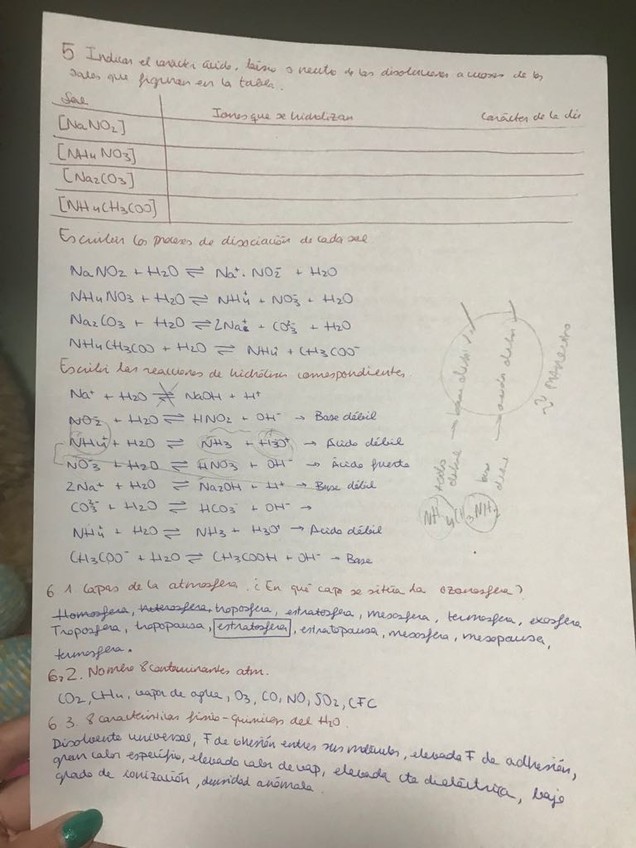 5 Indicar el carácter ácido, básico o neutro de las disoluciones acuosas de las
sales que figuran en la tabla.
Sal Iones que se hidrolizan Carácter de la dis
[NaNO2]
[NH4NO3]
[Na2CO3]
[NH4CH3COO]
Escribir los procesos de disociación de cada sal
NaNO2 + H2O ⇌ Na⁺ · NO2⁻ + H2O
NH4NO3 + H2O ⇌ NH4⁺ + NO3⁻ + H2O
Na2CO3 + H2O ⇌ 2Na⁺ + CO3²⁻ + H2O
NH4CH3COO + H2O ⇌ NH4⁺ + CH3COO⁻
Escribir las reacciones de hidrólisis correspondientes
Na⁺ + H2O ⇌ NaOH + H⁺
NO2⁻ + H2O ⇌ HNO2 + OH⁻ → Base débil
NH4⁺ + H2O ⇌ NH3 + H3O⁺ → Ácido débil
NO3⁻ + H2O ⇌ HNO3 + OH⁻ → Ácido fuerte
2Na⁺ + H2O ⇌ Na2OH + H⁺ → Base débil
CO3²⁻ + H2O ⇌ HCO3⁻ + OH⁻ →
NH4⁺ + H2O ⇌ NH3 + H3O⁺ → Ácido débil
CH3COO⁻ + H2O ⇌ CH3COOH + OH⁻ → Base
base débil
ácido débil
6 1 Capas de la atmosfera. ¿En qué capa se sitúa la ozonosfera?
Homosfera, heterosfera, troposfera, estratosfera, mesosfera, termosfera, exosfera
Troposfera, tropopausa, estratosfera, estratopausa, mesosfera, mesopausa,
termosfera.
6.2. Nombre 8 contaminantes atm.
CO2, CH4, vapor de agua, O3, CO, NO, SO2, CFC
6 3. 8 características físico-químicas del H2O.
Disolvente universal, F de cohesión entres sus moléculas, elevada F de adhesión,
gran calor específico, elevado calor de vap, elevada cte dieléctrica, bajo
grado de ionización, densidad anómala.